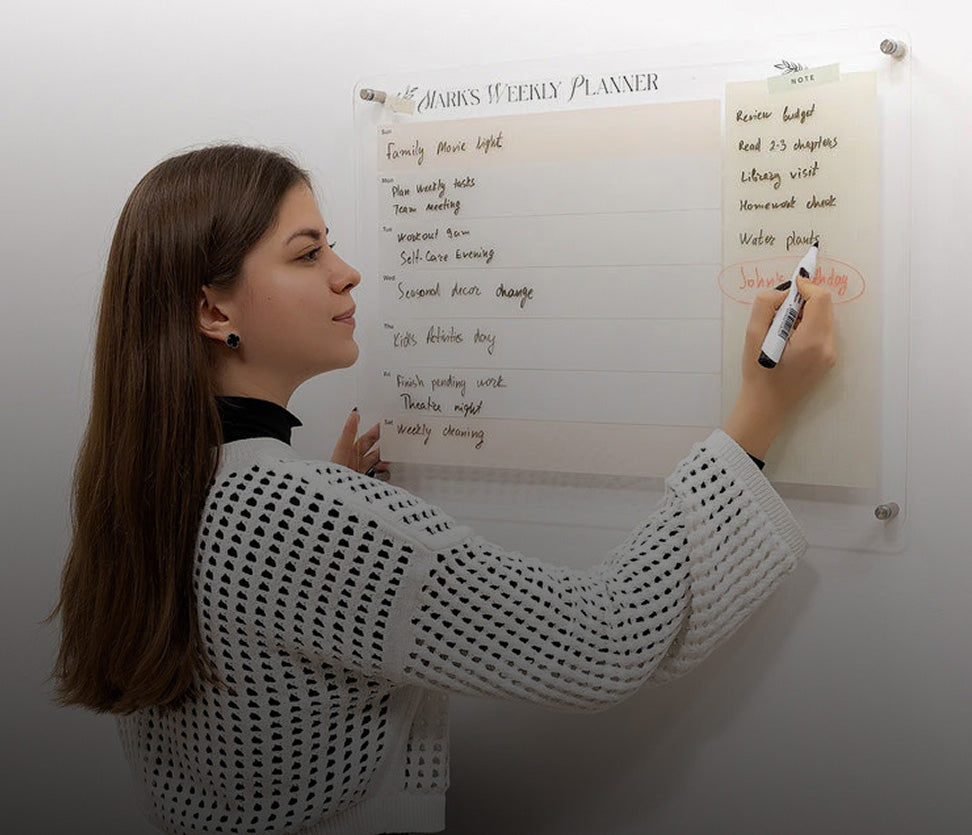 MARK'S WEEKLY PLANNER
Sun
Family Movie Light
Mon
Plan weekly tasks
Team meeting
Tue
Workout 9am
Self-Care Evening
Wed
Seasonal decor change
Thu
Kids Activities day
Fri
Finish pending work
Theatre night
Sat
Weekly cleaning
NOTE
Review budget
Read 2-3 chapters
Library visit
Homework check
Water plants
John's